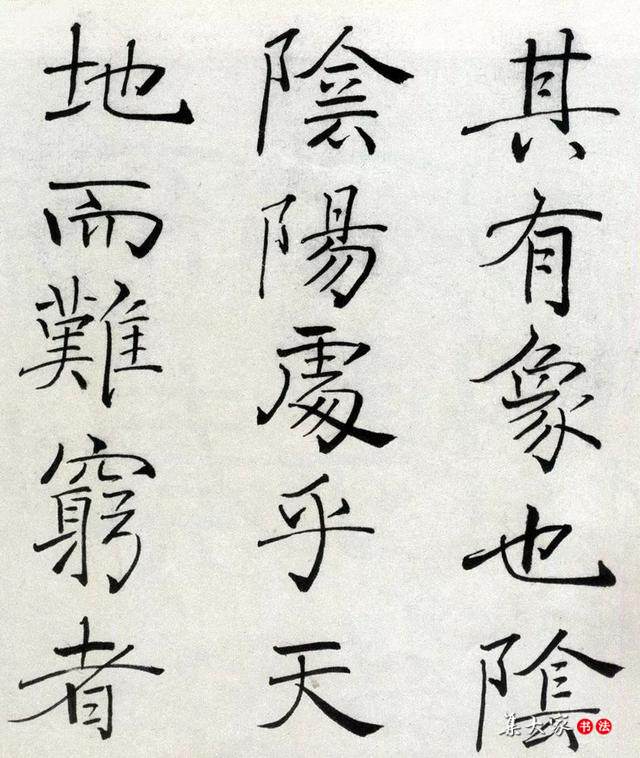 其有象也隂
陰陽處乎天
地而難窮者
集大家书法